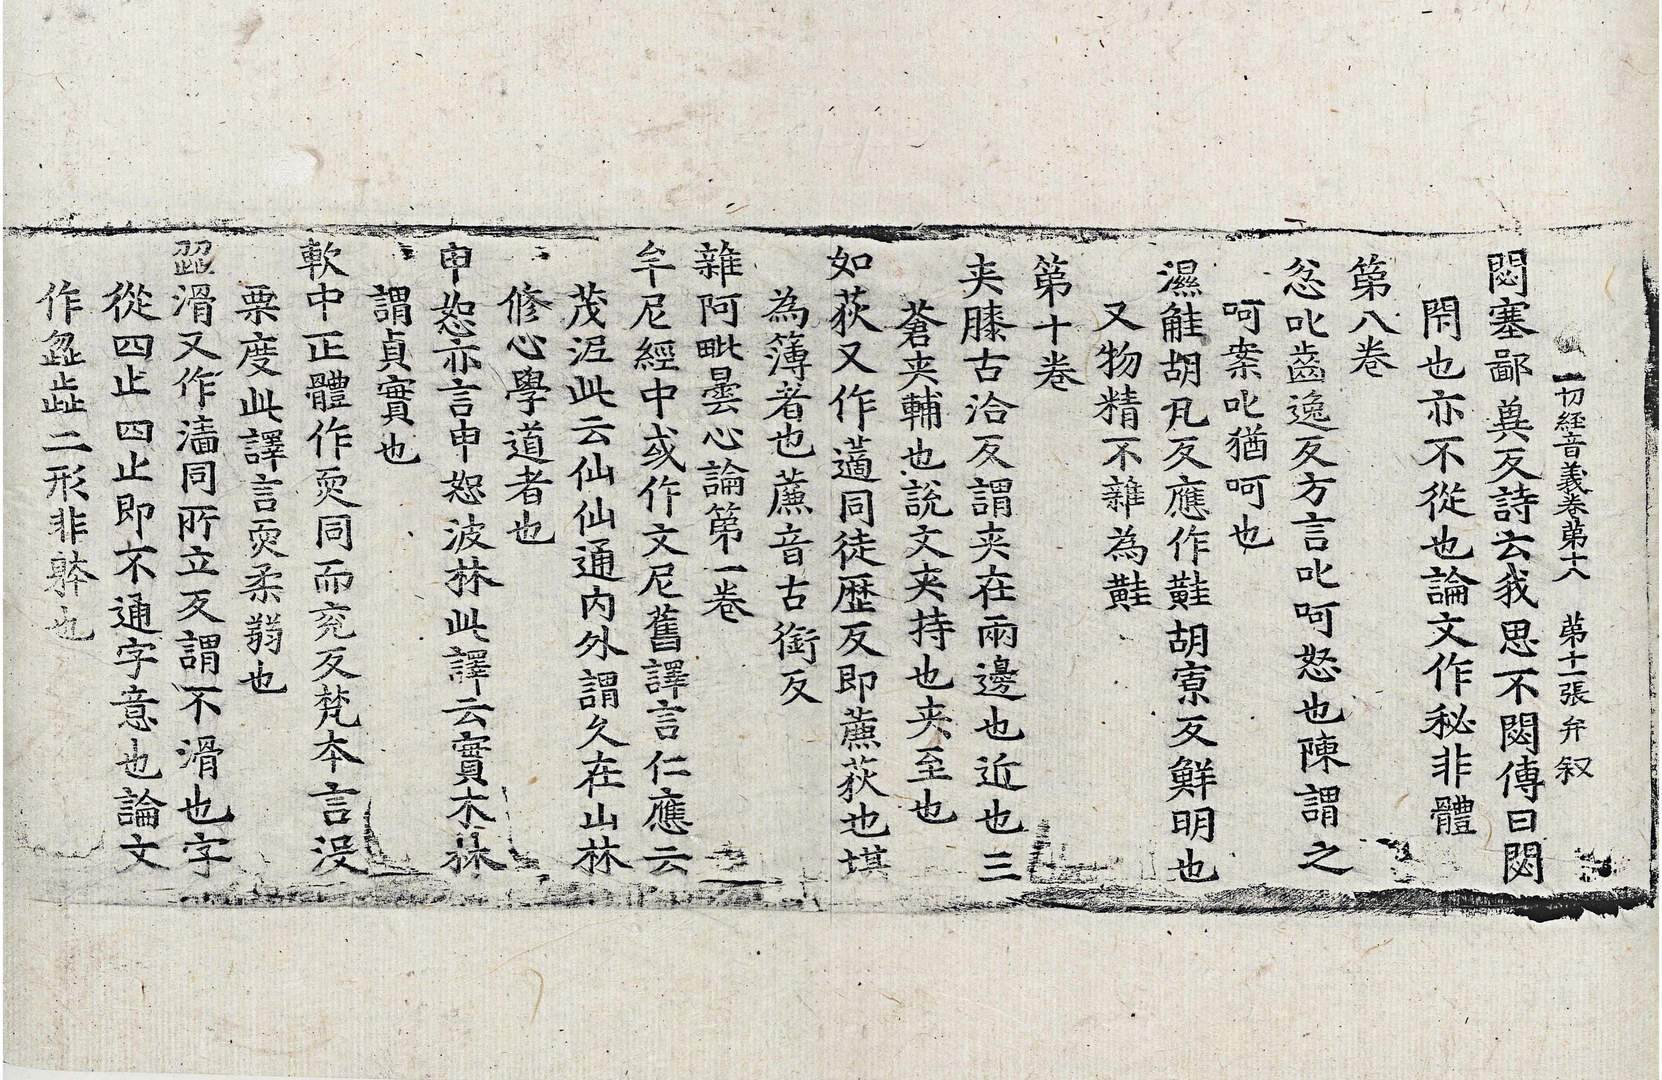 一切經音義卷第十八　第十一張弁叙
閟塞鄙兾反詩云我思不閟傳曰閟
閇也亦不從也論文作秘非體
第八卷
忿叱齒逸反方言叱呵怒也陳謂之
呵案叱猶呵呵也
濕鮭胡凡反應作黊胡寡反鮮明也
又物精不雜為黊
第十卷
夹膝古洽反謂夹在兩邊也近也三
蒼夹輔也說文夹持也夹至也
如荻又作藡同徒歷反即藨荻也堪
為簿者也藨音古銜反
雜阿毗曇心論第一卷
牟尼經中或作文尼舊譯言仁應云
茂泥此云仙仙通內外謂久在山林
修心學道者也
申恕亦言申申恕波林此譯云實木林
謂貞實也
軟中正體作耎同而兖反梵本言沒
栗度此譯言耎柔弱也
澁滑又作濇同所立反謂不滑也字
從四止四止即不通字意也論文
作歰歮二形非躰也